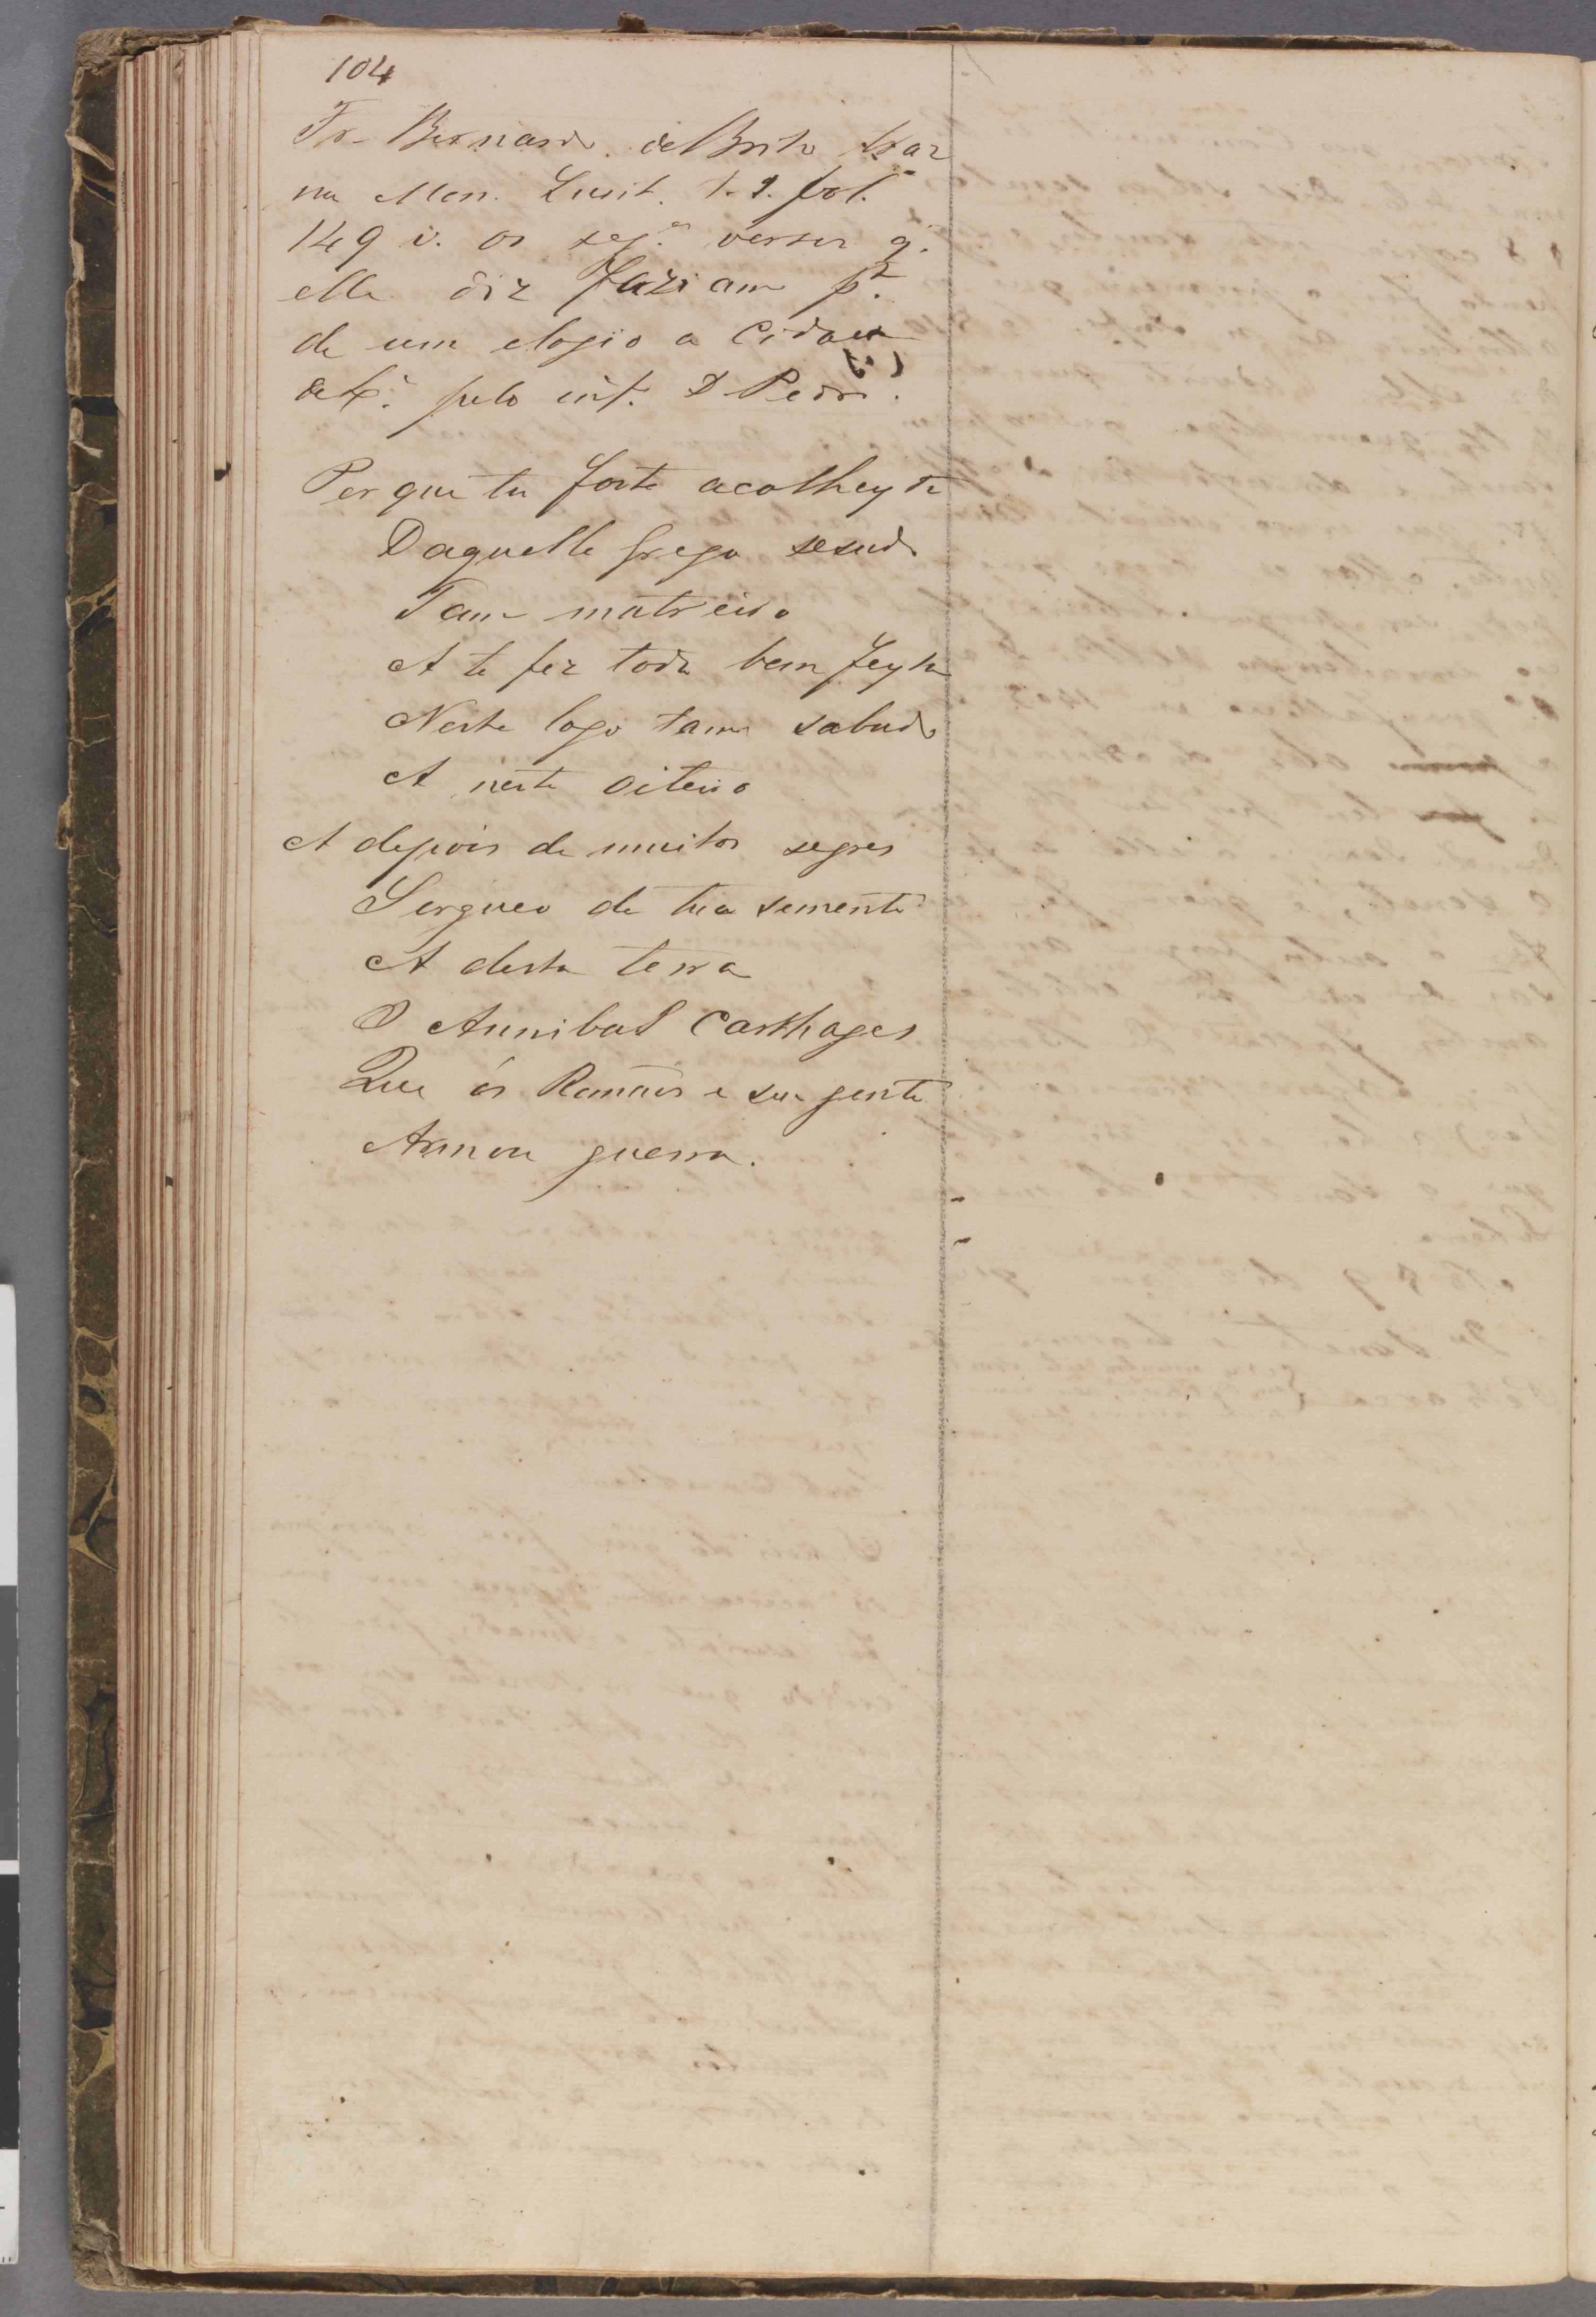 104
Fr. Bernardo de Brito traz
na Mon. Lusit. t. 2. fol.
149 v. os seg.es versos q.
elle diz faziam p.te
de um elogio a Cidade
de Lx.a pelo inf. D Pedro.
Per que tu foste acolheyta
Daquelle grego sesudo
Tam matreiro
A te fez toda bem feyta
Neste logo tam sabudo
A neste oiteiro
A depois de muitos segres
Sergueo de tua semente
A desta terra
O Annibal Carthages
Que ós Romãos e sua gente
Armou guerra.